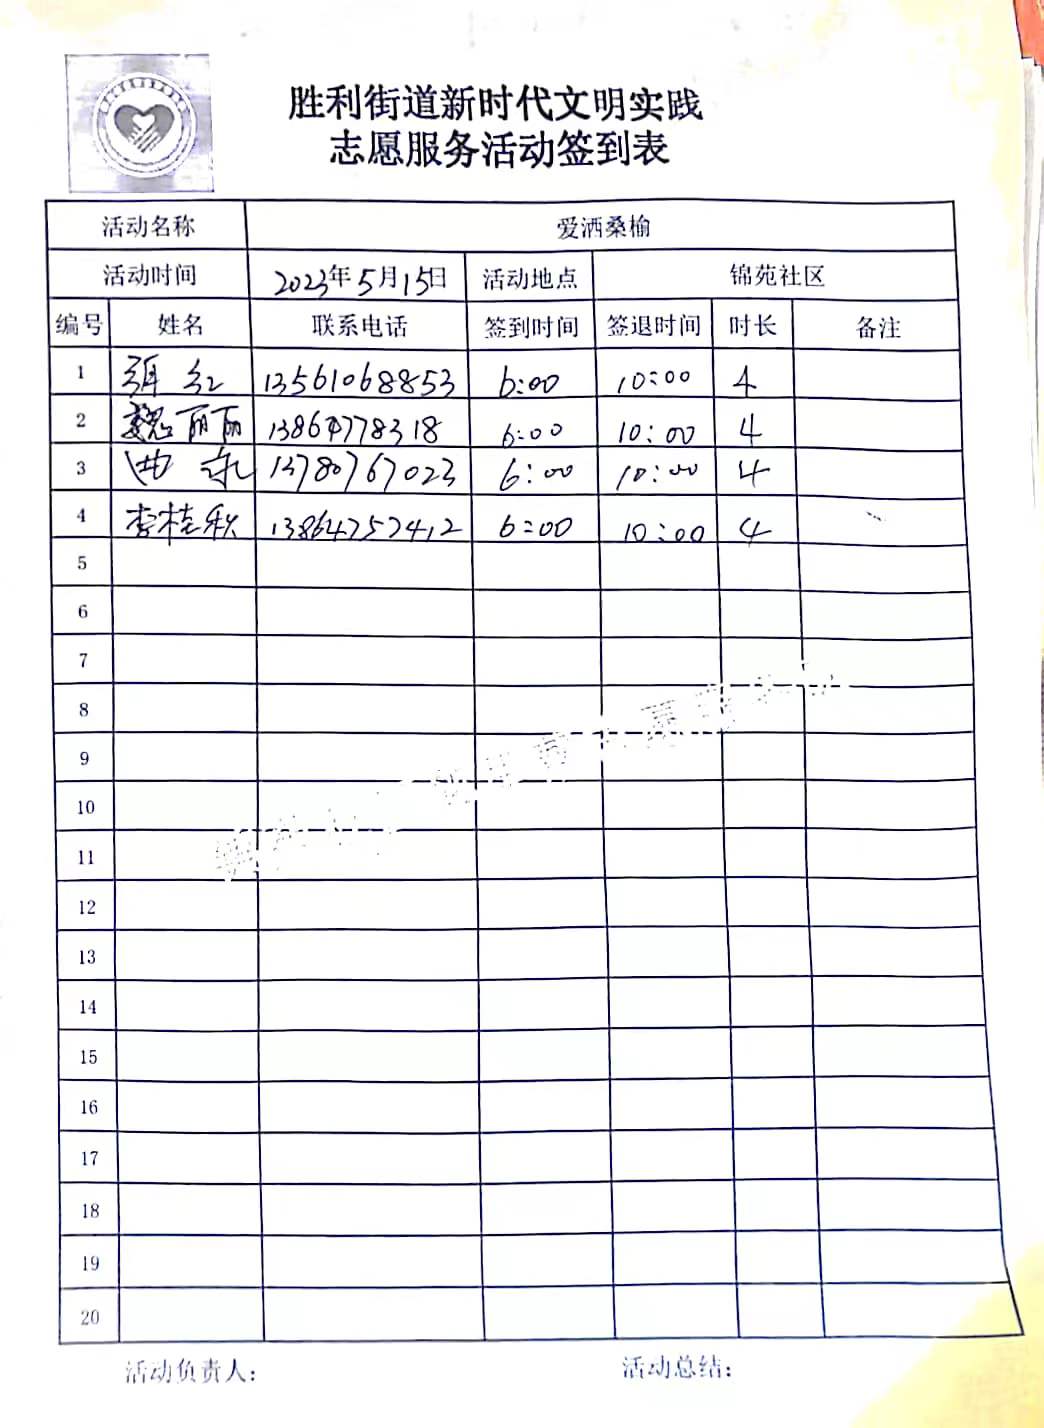 胜利街道新时代文明实践
志愿服务活动签到表
活动名称 爱洒桑榆
活动时间 2023年5月15日 活动地点 锦苑社区
编号 姓名 联系电话 签到时间 签退时间 时长 备注
1 红 13561068853 6:00 10:00 4
2 魏丽丽 13864778318 6:00 10:00 4
3 13780767023 6:00 10:00 4
4 李桂秋 13864757412 6:00 10:00 4
5
6
7
8
9
10
11
12
13
14
15
16
17
18
19
20
活动负责人: 活动总结: